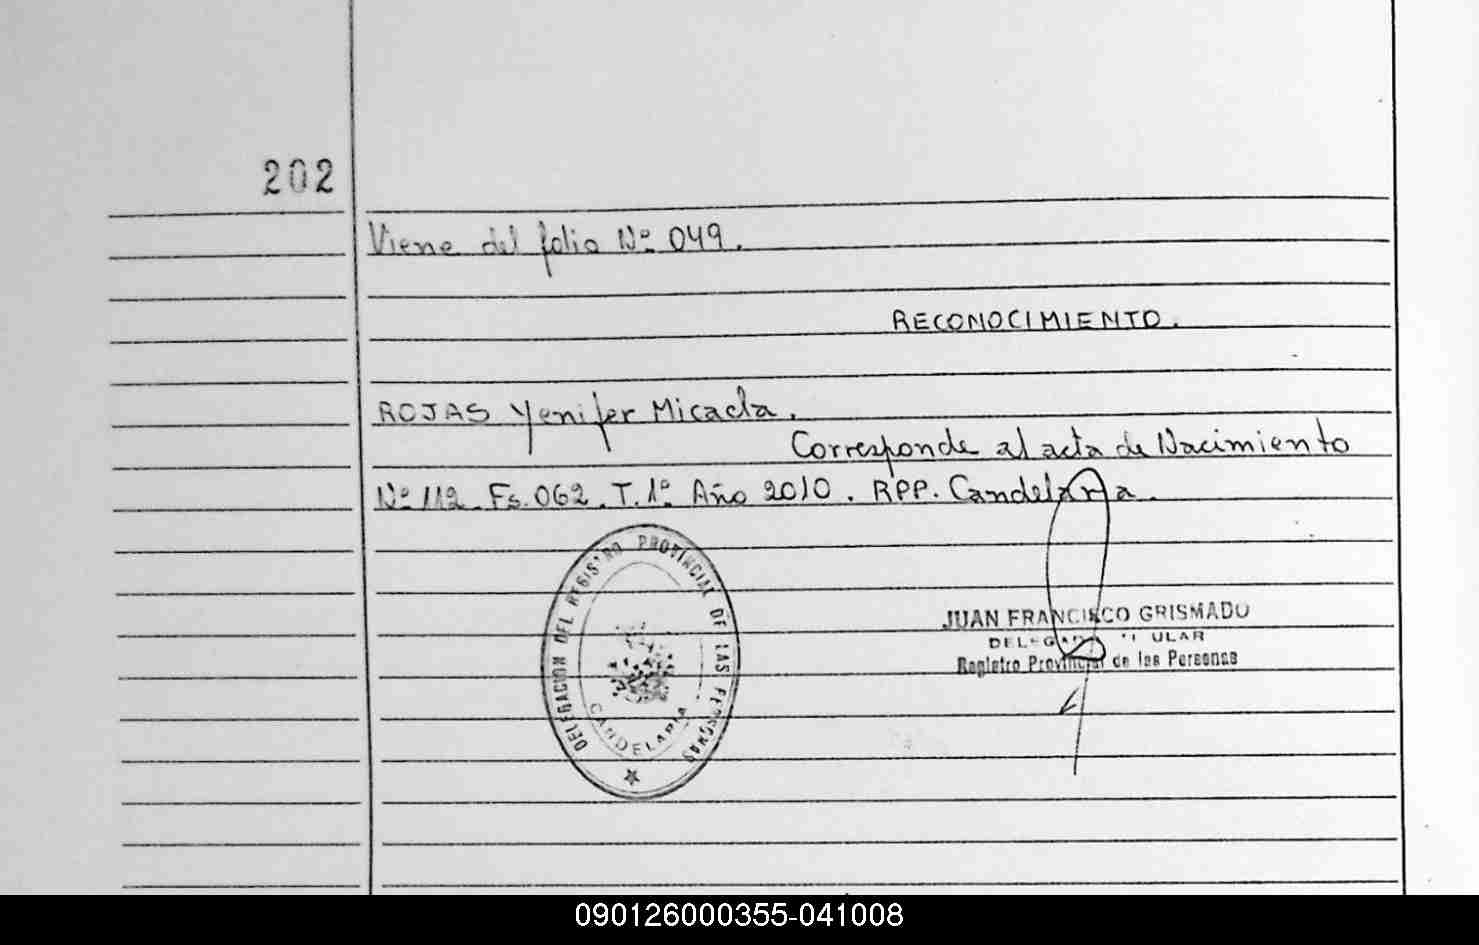 202
Viene del folio Nº 049.
RECONOCIMIENTO.
ROJAS Yenifer Micaela.
Corresponde al acta de Nacimiento
Nº 112. Fs. 062. T. 1º Año 2010. RPP. Candelaria.
DELEGACION DEL REGISTRO PROVINCIAL DE LAS PERSONAS
CANDELARIA
JUAN FRANCISCO GRISMADO
Registro Provincial de las Personas
090126000355-041008